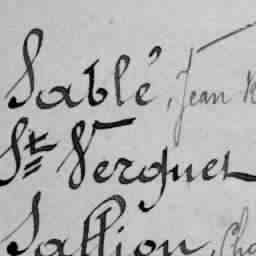 Sablé, Jean
St Verguet
Sallion, Cha